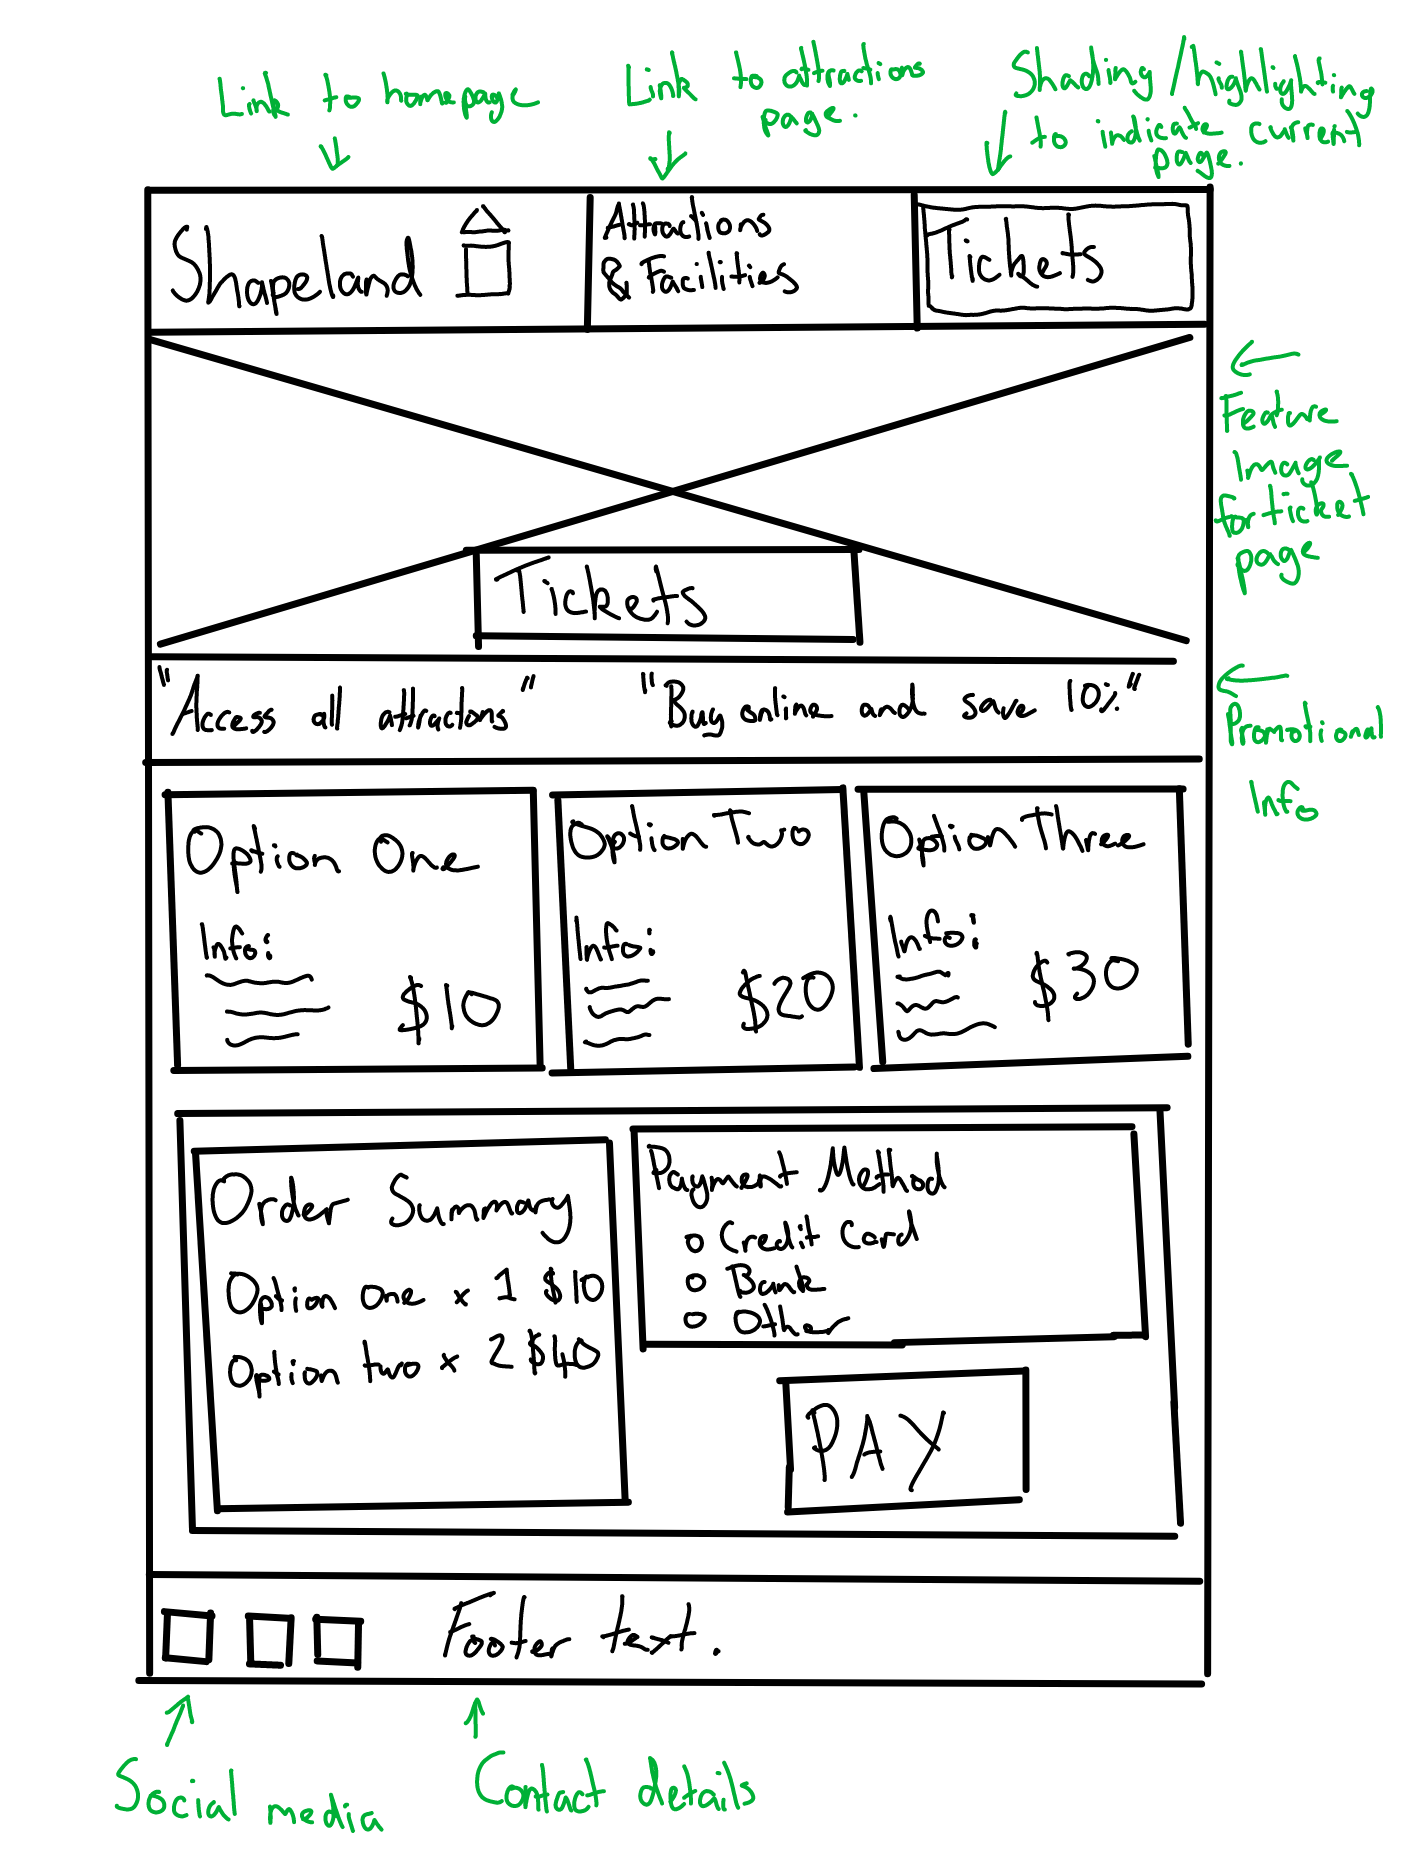 Link to homepage
Link to attractions
page.
Shading/highlighting
to indicate current
page.
Shapeland
Attractions
& Facilities
Tickets
Feature
Image
for ticket
page
Tickets
"Access all attractons"
"Buy online and save 10%"
Promotional
Info
Option One
Info:
$10
Option Two
Info:
$20
Option Three
Info:
$30
Order Summary
Option one x 1 $10
Option two x 2 $40
Payment Method
Credit Card
Bank
Other
PAY
Footer text.
Social media
Contact details